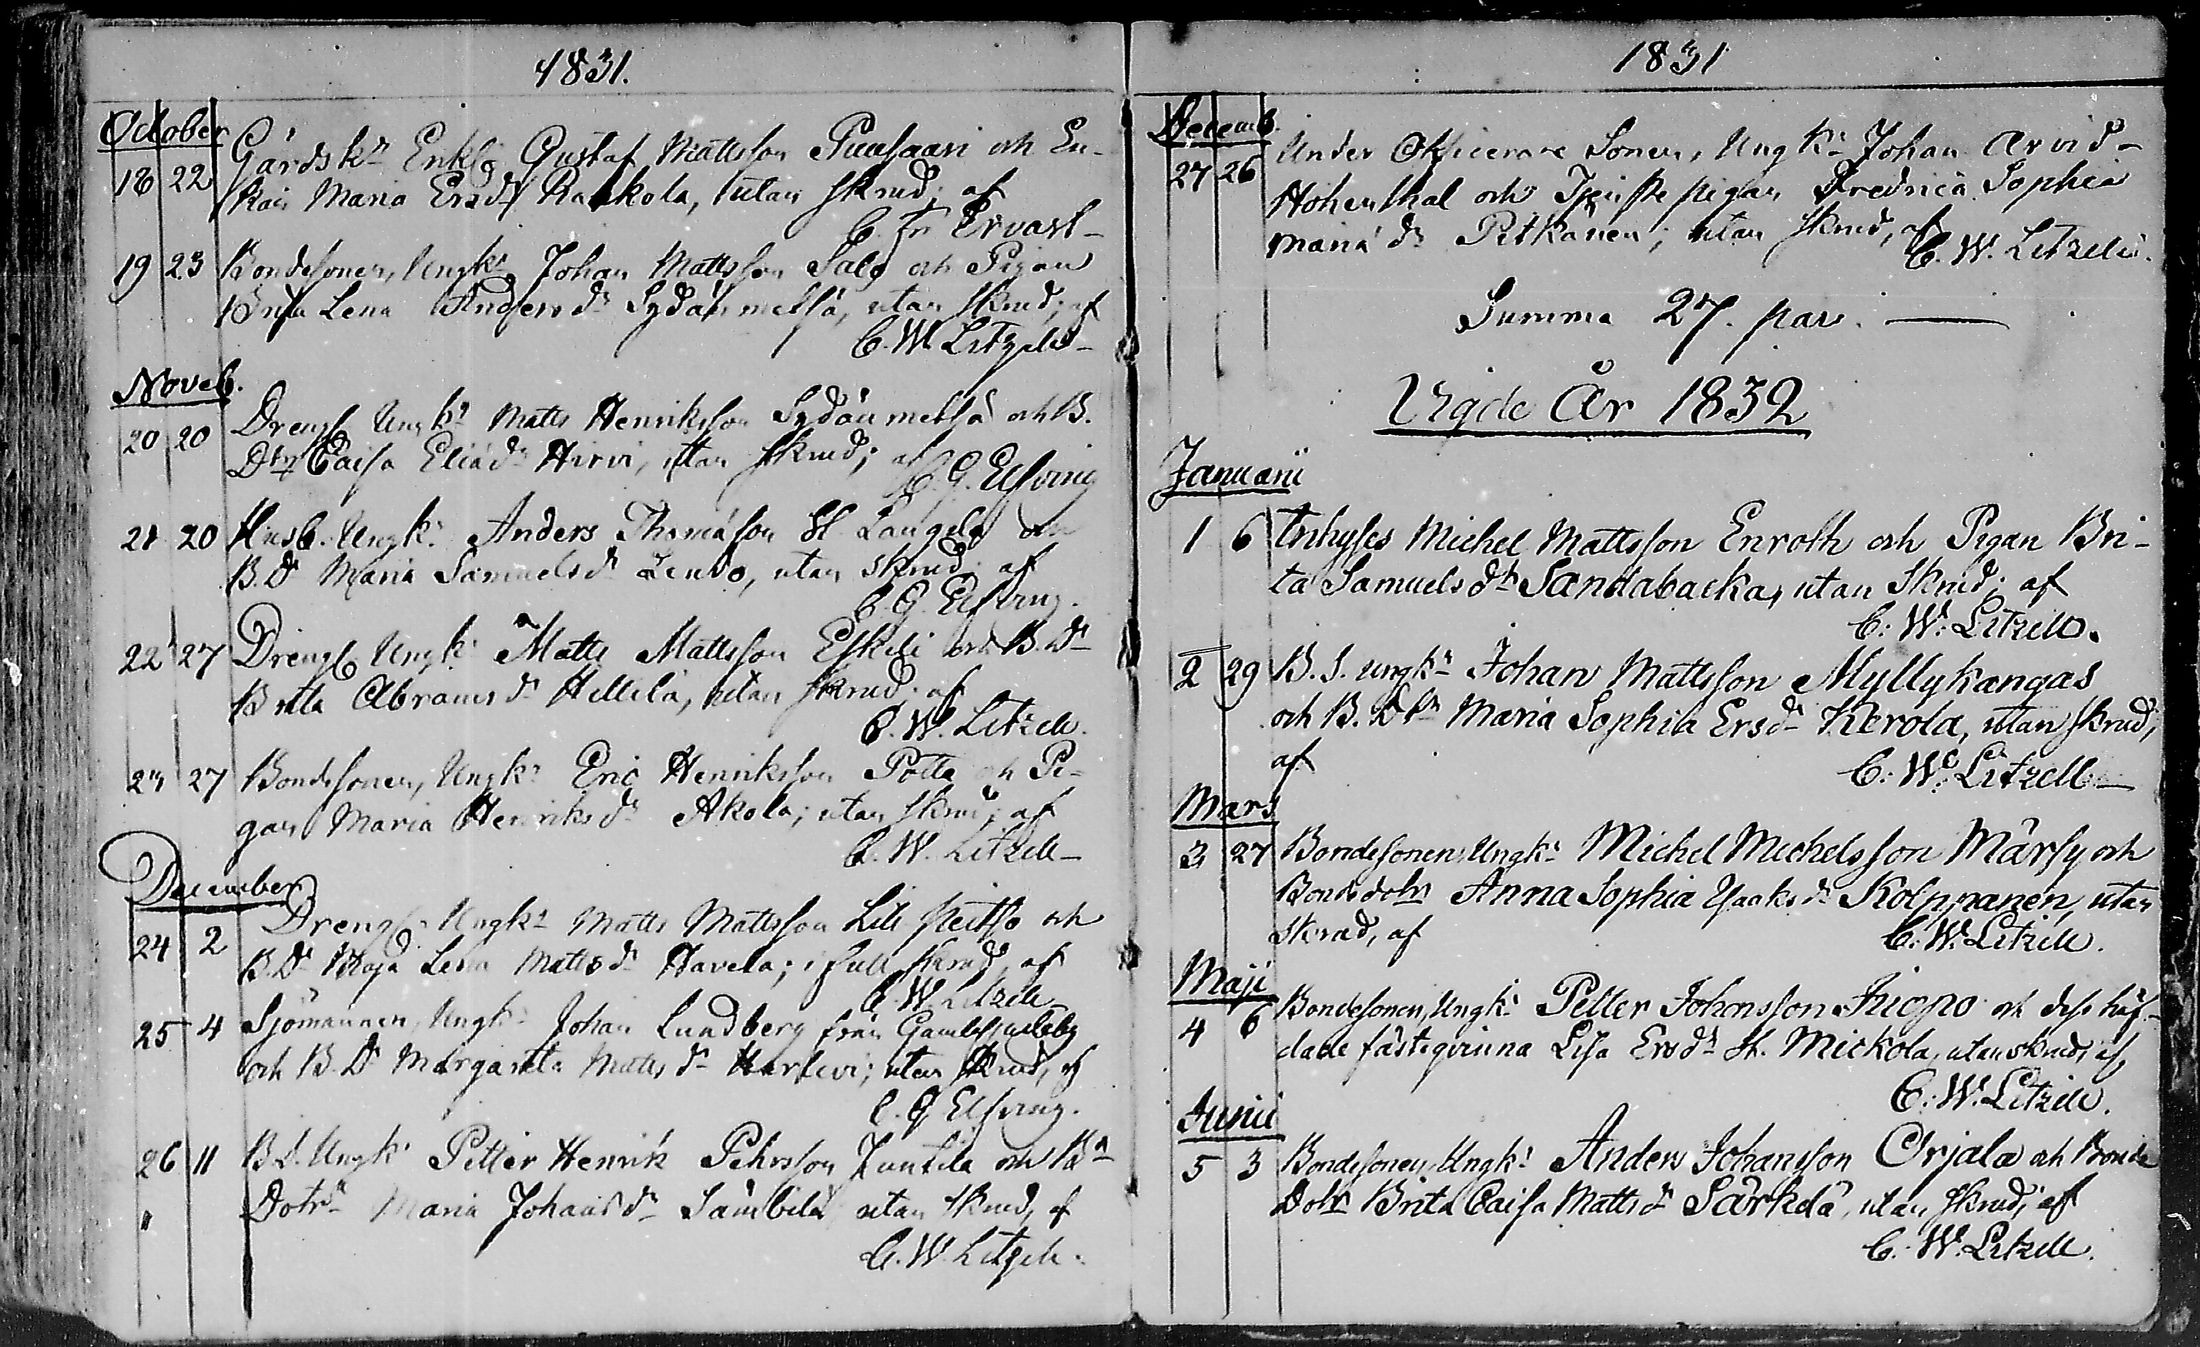 1831.
October
18 22 Gårdsk:n Enkl: Gustaf Mattsson Puusaari och En-
kan Maria Ersd:r Raskola, utan skrud; af
C. Fr Ervast
19 23 Bondesonen, Ungk: Johan Mattsson Salo och Pigan
Brita Lena Andersd:r Sydänmetsä, utan skrud; af
C. W. Litzell
Noveb.
20 20 Dreng Ungk: Matts Henriksson Sydänmetsä och B.
Dtr Caisa Eliæd:r Hirvi, utan skrud; af
C. G. Elfving
21 20 Husb. Ungk: Anders Thomasson St Langila och
B. Dr Maria Samuelsd:r utan skrud; af
C. G. Elfving.
22 27 Dreng Ungk: Matts Mattsson Eskeli och B. Dr
Brita Abramsd:r Hellilä, utan skrud; af
C. W. Litzell.
23 27 Bondesonen, Ungk: Eric Henriksson Potta och Pi-
gan Maria Henriksd:r Akola; utan skrud; af
C. W. Litzell
December
24 2 Dreng Ungk: Matts Mattsson Lill Peitso och
B. Dr Maja Lena Mattsd:r Havela; i full skrud, af
C. W. Litzell
25 4 Sjömannen, Ungk: Johan Lundberg från Gamlakarleby
och B. Dr Margareta Mattsd:r utan skrud, af
C. G. Elfving.
26 11 B. S. Ungk: Petter Henrik Pehrsson Junttila och Bn
" Dotr. Maria Johansd:r utan skrud, af
C. W. Litzell.
1831
Decemb.
27 26 Under Officerare Sonen, Ungk: Johan Arvid
Hohenthal och Tjenstepigan Fredrica Sophia
Mariæ d:r Pitkänen; utan skrud, af
C. W. Litzell.
Summa 27. par.
Vigde År 1832
Januarii
1 6 Inhyses Michel Mattsson Enroth och Pigan Bri-
ta Samuelsd:r Sandabacka, utan skrud; af
C: W: Litzell.
2 29 B. S. Ungk:n Johan Mattsson Myllykangas
och B. Dtr Maria Sophia Ersd:r Kerola, utan skrud;
af C: W: Litzell
Mars
3 27 Bondesonen, Ungk: Michel Michelsson Märsy och
Bondedotr. Anna Sophia Isaksd:r Kolppanen, utan
skrud, af C: W: Litzell.
Maji
4 6 Bondesonen, Ungk: Petter Johansson Inigno och dess häf-
dade fästeqvinna Lisa Ersd:r St. Mickola, utan skrud, af
C: W: Litzell.
Junii
5 3 Bondesonen, Ungk: Anders Johansson Orjala och Bonde
Dotr Brita Caisa Mattsd:r Särkelä, utan skrud; af
C: W: Litzell.